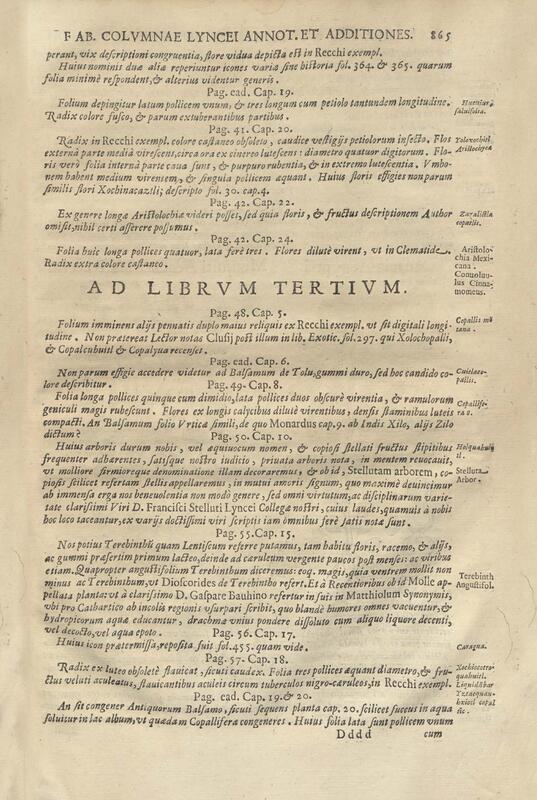 FAB. COLVMNAE LYNCEI ANNOT. ET ADDITIONES. 865
perant, vix descriptioni congruentia, flore vidua depicta est in Recchi exempl.
Huius nominis duæ aliæ reperiuntur icones varia sine historia fol. 364. & 365. quarum
folia minimè respondent, & alterius videntur generis.
Pag. ead. Cap. 19.
Folium depingitur latum pollicem vnum, & tres longum cum petiolo tantundem longitudine.
Radix colore fusco, & parum extuberantibus partibus.
Pag. 41. Cap. 20.
Radix in Recchi exempl. colore castaneo obsoleto, caudice vestigijs petiolorum infecto. Flos
externâ parte mediâ virescens, circa ora ex cinereo lutescens: diametro quatuor digitorum. Flo-
ris verò folia interna parte caua sunt, & purpuro rubentia, & in extremo lutescentia. Vmbo-
nem habent medium virentem, & singula pollicem æquant. Huius floris effigies non parum
similis flori Xochinacaztli; descripto fol. 30. cap. 4.
Yoloxochitl
Aristolochia
Pag. 42. Cap. 22.
Ex genere longæ Aristolochiæ videri posset, sed quia floris, & fructus descriptionem Author
omisit, nihil certi asserere possumus.
Pag. 42. Cap. 24.
Folia huic longa pollices quatuor, lata ferè tres. Flores dilutè virent, vt in Clematide.
Radix extra colore castaneo.
Aristolo-
chia Mexi-
cana.
Conuoluu-
lus Cinna-
momeus.
AD LIBRVM TERTIVM.
Pag. 48. Cap. 5.
Folium imminens alijs pennatis duplo maius reliquis ex Recchi exempl. vt sit digitali longi-
tudine. Non prætereat Lector notas Clusij post illum in lib. Exotic. fol. 297. qui Xolochopalli,
& Copalcuhuitl & Copalyua recenset.
Pag. ead. Cap. 6.
Non parum effigie accedere videtur ad Balsamum de Tolu, gummi duro, sed hoc candido co-
lore describitur.
Pag. 49. Cap. 8.
Folia longa pollices quinque cum dimidio, lata pollices duos obscurè virentia, & ramulorum
geniculi magis rubescunt. Flores ex longis calycibus dilutè virentibus, densis staminibus luteis
compacti. An Balsamum folio Vrticæ simili, de quo Monardus cap. 9. ab Indis Xilo, alijs Zilo
dictum?
Pag. 50. Cap. 10.
Huius arboris durum nobis, vel æquiuocum nomen, & copiosi stellati fructus stipitibus
frequenter adhærentes, satisque nostro iudicio, priuata arboris nota, in mentem reuocauit,
vt molliore firmioreque denominatione illam decoraremus, & ob id, Stellutam arborem, co-
piosis scilicet refertam stellis appellaremus, in mutui amoris signum, quo maximè deuincimur
ab immensa erga nos beneuolentia non modò genere, sed omni virtutum, ac disciplinarum varie-
tate clarissimi Viri D. Francisci Stelluti Lyncei Collegæ nostri, cuius laudes, quamuis à nobis
hoc loco taceantur, ex varijs doctissimi viri scriptis iam omnibus ferè satis notæ sunt.
Stelluta
Arbor.
Pag. 55. Cap. 15.
Nos potius Terebinthũ quam Lentiscum referre putamus, tam habitu floris, racemo, & alijs,
ac gummi præsertim primum lacteo, deinde ad cæruleum vergente paucos post menses: ac viribus
etiam. Quapropter angustifolium Terebinthum diceremus: eoq. magis, quia ventrem mollit non
minus ac Terebinthum, vt Dioscorides de Terebintho refert. Et à Recentioribus ob id Molle ap-
pellata planta: vt à clarissimo D. Gaspare Bauhino refertur in suis in Matthiolum Synonymis,
vbi pro Cathartico ab incolis regionis vsurpari scribit, quo blandè humores omnes vacuentur, &
hydropicorum aquæ educantur, drachmæ vnius pondere dissoluto cum aliquo liquore decenti,
vel decocto, vel aqua epoto.
Terebinth
Angustifol.
Pag. 56. Cap. 17.
Huius icon prætermissa, reposita fuit fol. 455. quam vide.
Caragna.
Pag. 57. Cap. 18.
Radix ex luteo obsoletè flauicat, sicuti caudex. Folia tres pollices æquant diametro, & fru-
ctus veluti aculeatus, flauicantibus aculeis circum tuberculos nigro-cæruleos, in Recchi exempl.
Pag. ead. Cap. 19. & 20.
An sit congener Antiquorum Balsamo, sicuti sequens planta cap. 20. scilicet succus in aqua
soluitur in lac album, vt quædam Copallifera congeneres. Huius folia lata sunt pollicem vnum
Dddd cum